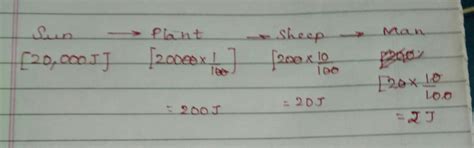 Sun → Plant → Sheep → Man
[20,000J] [20000×1/100] [200×10/100]
[20×10/100
=200J =20J =2J